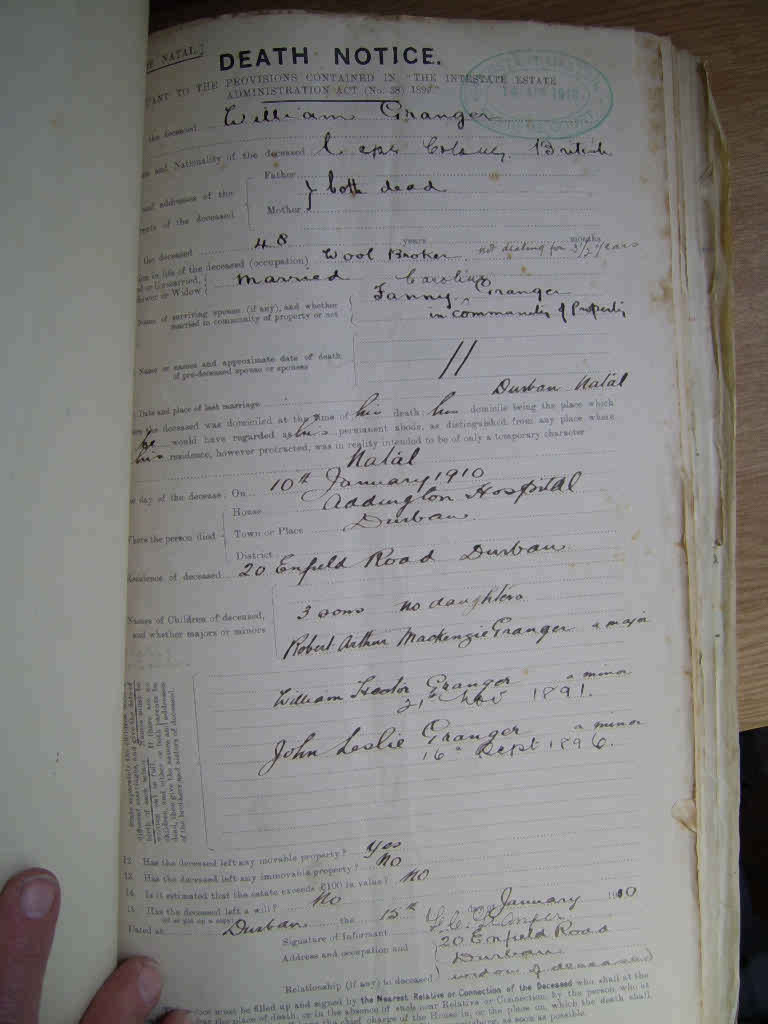 NATAL.]
DEATH NOTICE.
TO THE PROVISIONS CONTAINED IN "THE INTESTATE ESTATE
ADMINISTRATION ACT (No. 38) 1899"
the deceased William Granger
and Nationality of the deceased Cape Colony. British
and addresses of the
of the deceased
Father
Mother
} both dead
the deceased 48 years months
in life of the deceased (occupation) Wool Broker. not dealing for years
or Unmarried,
or Widow { Married
Name of surviving spouse (if any), and whether
married in community of property or not
Caroline
Fanny Granger
in community of Property
Name or names and approximate date of death
of pre-deceased spouse or spouses
//
Date and place of last marriage Durban Natal
deceased was domiciled at the time of his death his domicile being the place which
he would have regarded as his permanent abode, as distinguished from any place where
his residence, however protracted, was in reality intended to be of only a temporary character
Natal
day of the decease: On 10th January 1910
Where the person died
House Addington Hospital
Town or Place Durban
District
Residence of deceased 20 Enfield Road Durban
Names of Children of deceased,
and whether majors or minors
3 sons no daughters
Robert Arthur Mackenzie Granger a major
William Hector Granger a minor
21st 1891.
John Leslie Granger a minor
16th Sept 1896.
12. Has the deceased left any movable property? Yes
13. Has the deceased left any immovable property? No
14. Is it estimated that the estate exceeds £100 in value? No
15. Has the deceased left a will? No
Dated at Durban the 15th day of January 1910
Signature of Informant Granger
Address and occupation and
20 Enfield Road
Durban
Relationship (if any) to deceased widow of deceased
must be filled up and signed by the Nearest Relative or Connection of the Deceased who shall at the
the place of death, or in the absence of such near Relative or Connection, by the person who at
chief charge of the House in, or the place on, which the death shall
as soon as possible.